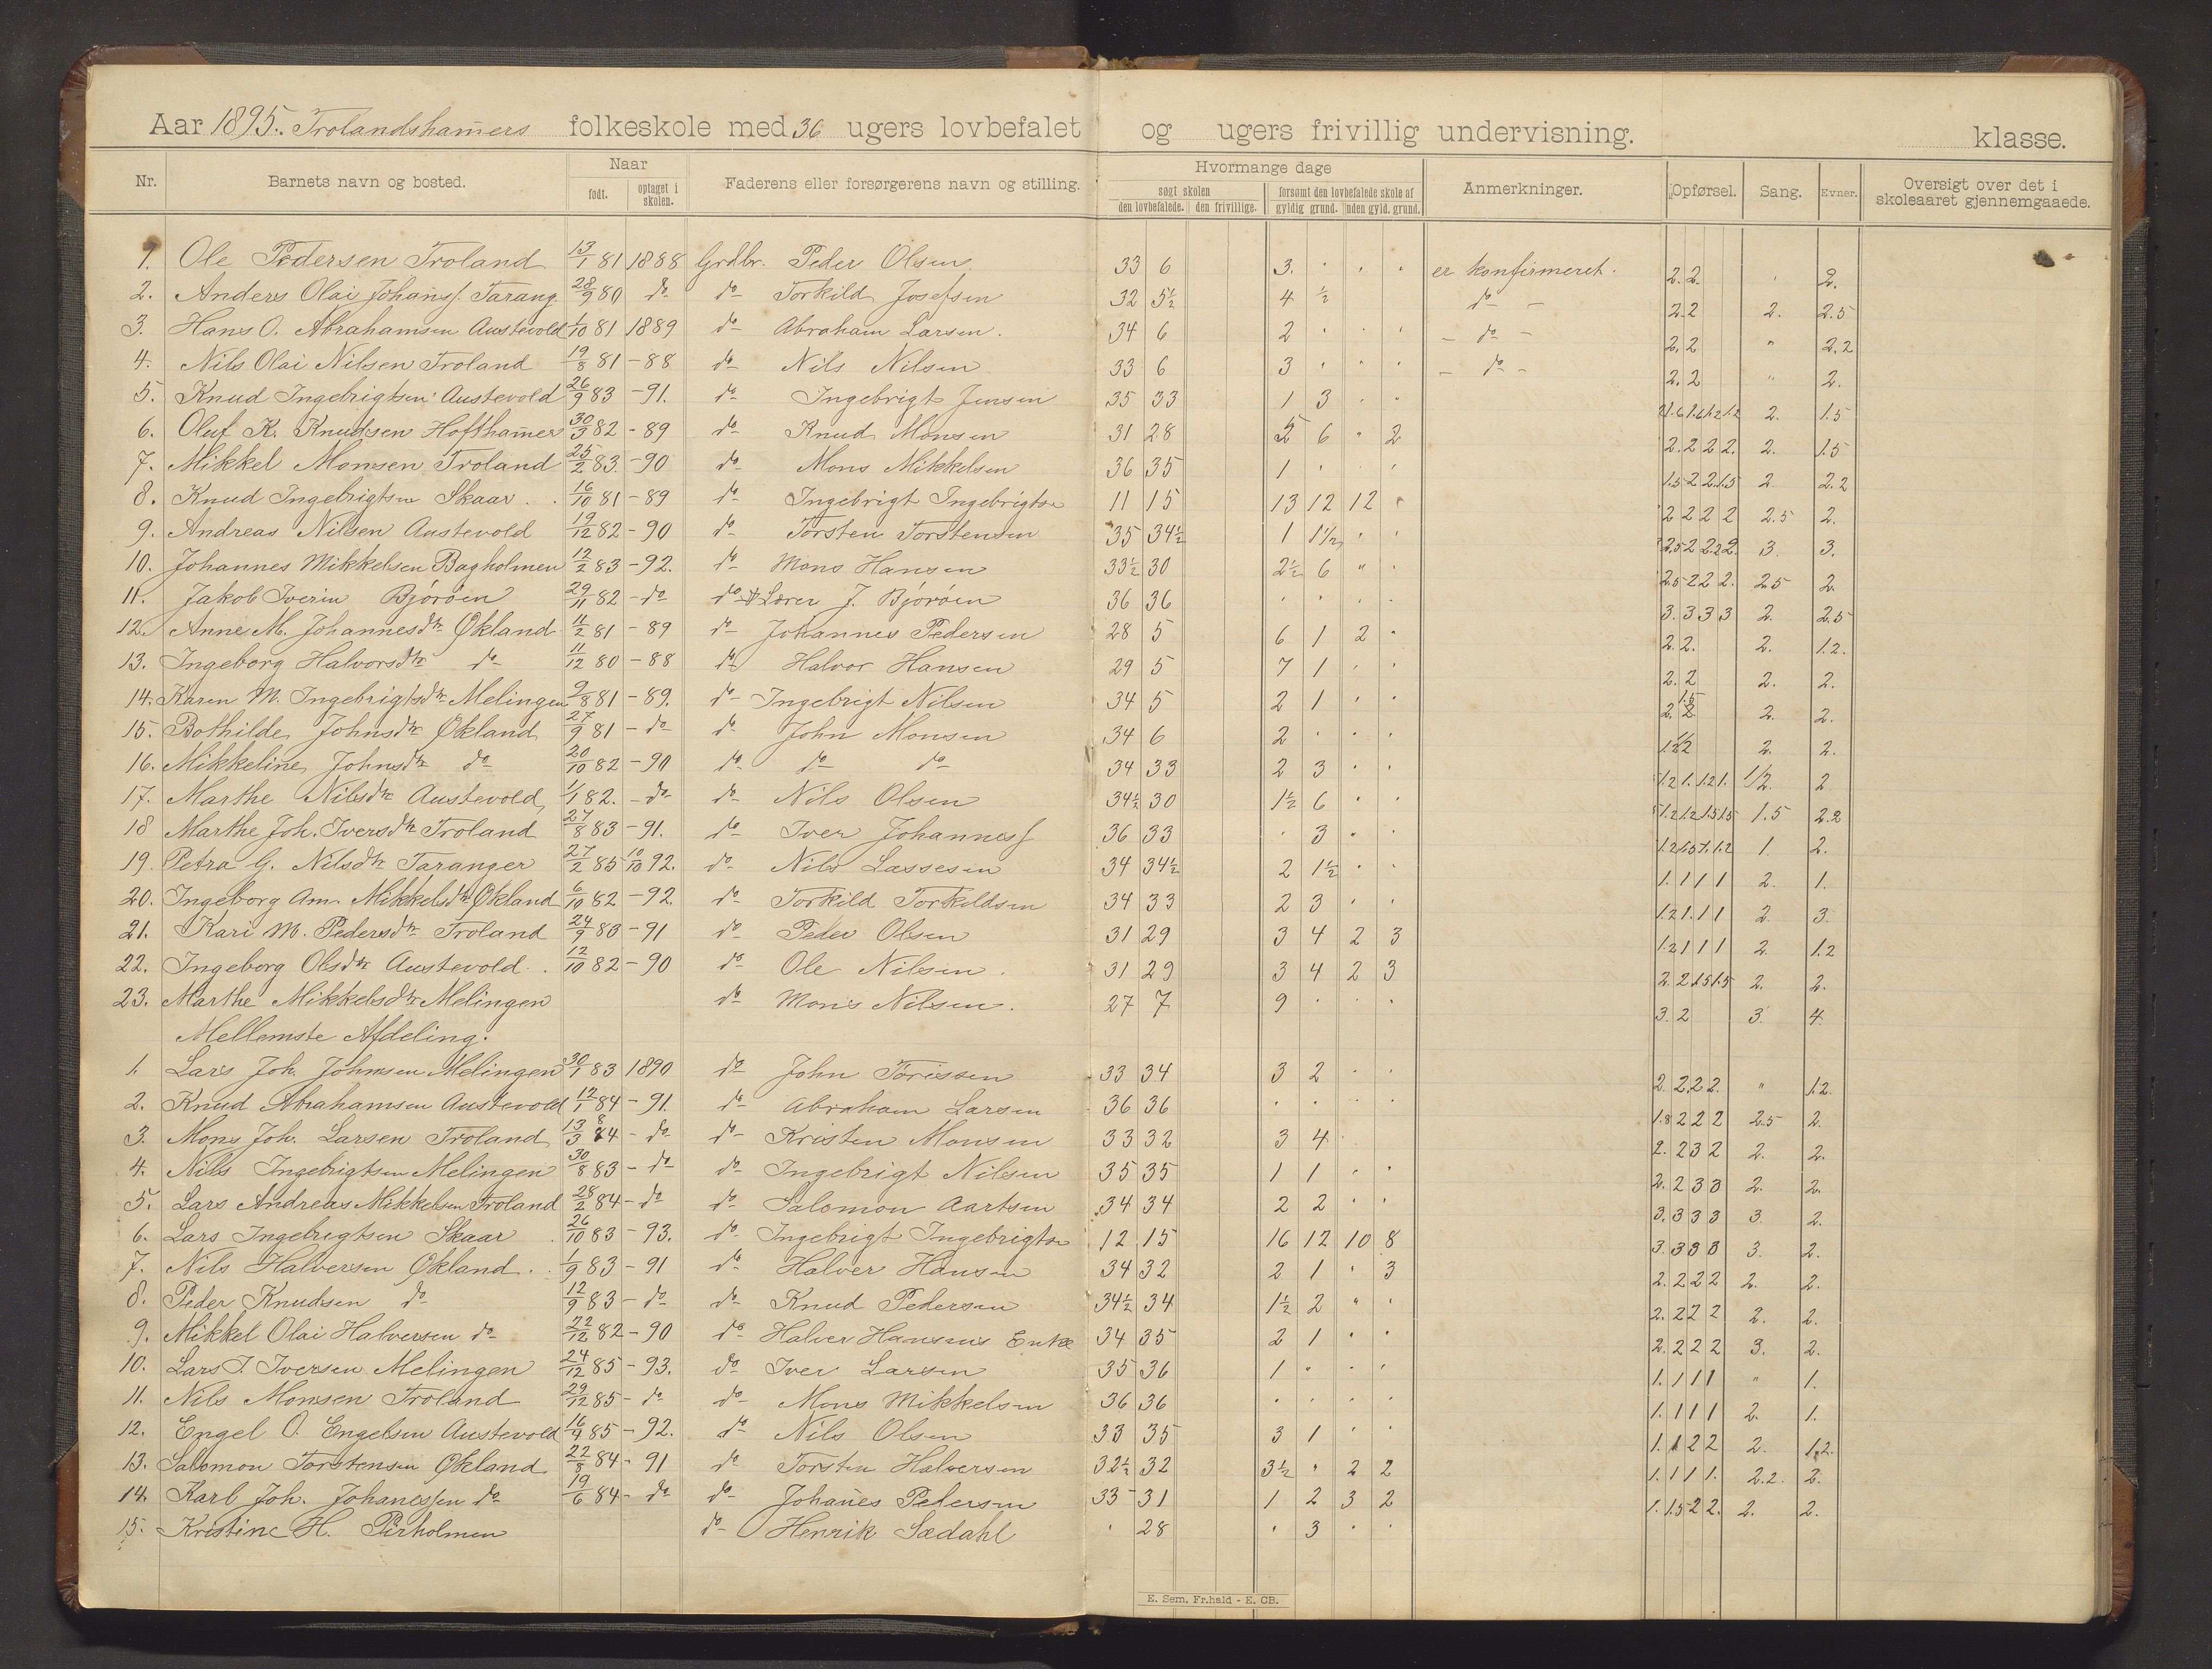 Aar 1895. Trolandshamers folkeskole med 36 ugers lovbefalet og ugers frivillig undervisning. klasse.
Nr. Barnets navn og bosted. Naar født. optaget i skolen. Faderens eller forsørgerens navn og stilling. Hvormange dage søgt skolen den lovbefalede. den frivillige. forsømt den lovbefalede skole af gyldig grund. uden gyld. grund. Anmerkninger. Opførsel. Sang. Evner. Oversigt over det i skoleaaret gjennemgaaede.
1. Ole Pedersen Troland 13/1 81 1888 Grdbr. Peder Olsen 33 6 3. " " " er konfirmeret. 2. 2. " 2.
2. Anders Olai Johanss. Tarang. 28/9 80 do do Torkild Josefsen 32 5½ 4 ½ do 2.2 2. 2.5
3. Hans O. Abrahamsen Austevold 1/10 81 1889 do Abraham Larsen. 34 6 2 " " " - do - 2. 2 " 2.2
4. Nils Olai Nilsen Troland 19/8 81 -88 do Nils Nilsen 33 6 3 " " " - do - 2. 2 " 2.
5. Knud Ingebrigtsen Austevold 26/9 83 -91. do Ingebrigt Jensen 35 33 1 3 " " 2. 1.5
6. Oluf K. Knudsen Hofthamer 30/3 82 -89 do Knud Monsen 31 28 5 6 " 2 2. 2 2 2. 2. 1.5
7. Mikkel Monsen Troland 25/2 83. -90 do Mons Mikkelsen 36 35 1 " " 1.5 2 2 1.5 2 2.2
8. Knud Ingebrigtsen Skaar . . 16/10 81 -89 do Ingebrigt Ingebrigtsn 11 15 13 12 12 " 2 2 2 2 2.5 2.
9. Andreas Nilsen Austevold 19/12 82 -90 do Torsten Torstensen 35 34½ 1 1½ " " 2.5 2 2.2 2. 3. 3.
10. Johannes Mikkelsen Bagholmen 12/2 83 -92. do Mons Hansen 33½ 30 2½ 6 " " 2.5 2 2 2. 2.5 2.
11. Jakob Iverin Bjørøen 29/11 82 - do do Lærer J. Bjørøen 36 36 " " " " 3. 3 3 3 2. 2.5
12. Anne M. Johannesdtr Økland 11/2 81 -89 do Johannes Pedersen 28 5 6 1 2 " 2. 2. 2. 1.2.
13. Ingeborg Halvorsdtr do 11/12 80 -88 do Halvor Hansen 29 5 7 1 " " 2. 2 2. 2.
14. Karen M. Ingebrigtsdtr Melingen 9/8 81 -89. do Ingebrigt Nilsen 34 5 2 1 " " 2. 2 1.5 2. 2.
15. Bothilde Johnsdtr Økland 27/9 81 - do do John Monsen 34 6 2 " " " 2. 2.
16. Mikkeline Johnsdtr do 20/10 82 -90 do do do 34 33 2 3 " " 1.2 1. 1.2 1. 1/2. 2
17. Marthe Nilsdtr Austevold 1/1 82. - do do Nils Olsen 34½ 30 1½ 6 " " 1.2 1.2 1.5 1.5 1.5 2.2
18 Marthe Joh. Iversdtr Troland 27/8 83 -91. do Iver Johanness 36 33 " 3 " " 1.2 1.5 1. 1.2 1. 2.
19. Petra G. Nilsdtr Taranger 27/2 85 10/10 92. do Nils Lassesen 34 34½ 2 1½ " " 1. 1 1 1 2. 1.
20. Ingeborg Am. Mikkelsdtr Økland 6/10 82 -92. do Torkild Torkildsen 34 33 2 3 " " 1.2 1. 1 1 2. 3.
21. Kari M. Pedersdtr Troland 24/9 83 -91 do Peder Olsen 31 29 3 4 2 3 1.2 1 1 1 2. 1.2
22. Ingeborg Olsdtr Austevold . 12/10 82 -90 do Ole Nilsen . 31 29 3 4 2 3 2. 2 1.5 1.5 2. 2.
23. Marthe Mikkelsdtr Melingen do Mons Nilsen. 27 7 9 " " " 3. 2 3. 4.
Mellemste Afdeling.
1. Lars Joh. Johnsen Melingen 30/1 83 1890 do John Torissen 33 34 3 2 " " 2. 2 2 2. " 1.2.
2. Knud Abrahamsen Austevold 12/1 84 -91. do Abraham Larsen 36 36 " " " " 1.8 2 2 2 2.5 2.
3. Mons Joh. Larsen Troland 13/3 84 - do do Kristen Monsen 33 32 3 4 " 2. 2 3 2 2. 2.
4. Nils Ingebrigtsen Melingen 30/8 83 - do do Ingebrigt Nilsen 35 35 1 1 " " 2. 2 3 3 2. 2.
5. Lars Andreas Mikkelsen Troland 28/2 84 - do do Salomon Aartsen 34 34 2 2 " " 3. 3 3 3 3. 2.
6. Lars Ingebrigtsen Skaar . 26/10 83 -93. do Ingebrigt Ingebrigtsn 12 15 16 12 10 8 3. 3 3 3 3. 2.
7. Nils Halversen Økland . . 1/9 83 -91 do Halver Hansen 34 32 2 1 " 3 2. 2 2 2 2. 2.
8. Peder Knudsen do 12/9 83 - do do Knud Pedersen 34½ 34 1½ 2 " " 2. 2 2 2 2. 2.
9. Mikkel Olai Halversen do 22/12 82 -90 do Halver Hansens Enke 34 35 2 1 " " 2. 2 2 2 3. 2.
10. Lars J. Iversen Melingen 24/12 85 -93. do Iver Larsen 35 36 1 " " " 1. 1 1 1 " 1.
11. Nils Monsen Troland 29/12 85 - do do Mons Mikkelsen 36 36 " " " " 1. 1 1 1 2. 1.
12. Engel O. Engelsen Austevold 16/4 85 -92. do Nils Olsen 33 35 3 1 " " 1. 1 2 2 2. 1.2.
13. Salomon Torstensen Økland 22/8 84 - 91 do Torsten Halversen 32½ 32 3½ " 2 2 1. 1 1 1. 2.2. 2.
14. Karl Joh. Johanessen do 19/6 84 - do do Johanes Pedersen 33 31 1 2 3 2 1. 1.5 2 2. 2. 2.
15. Kristine H. Pirholmen do Henrik Sædahl " 28 " 3 " "
E. Sem, Fr.hald - E. CB.